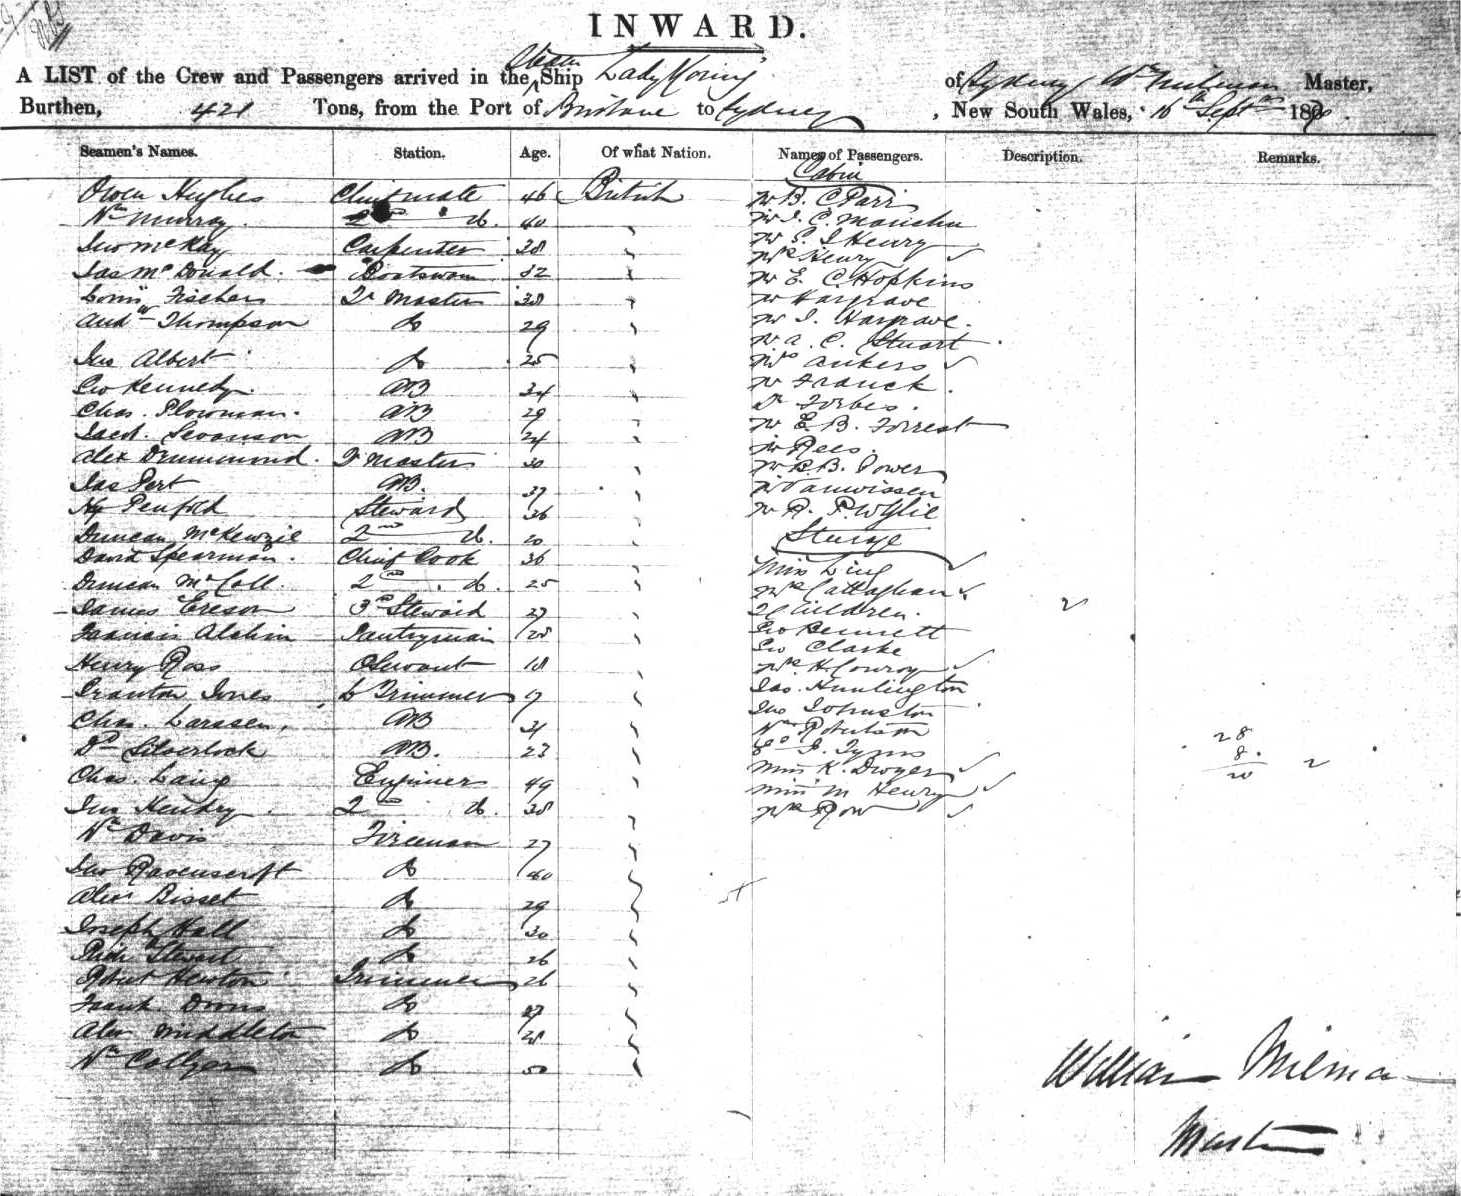 INWARD.
A LIST of the Crew and Passengers arrived in the Ship Lady Young of Sydney Wm Milman Master,
Burthen, 421 Tons, from the Port of Brisbane to Sydney, New South Wales, 16th Sept 18
Seamen's Names. Station. Age. Of what Nation. Names of Passengers. Description. Remarks.
Cabin
Owen Hughes Chief mate 46 British Mr B. C Parr
Wm Murray 2nd do. 40
Jno McKay Carpenter 38 Mr S. J Henry
Mrs Henry
Jas McDonald Boatswain 52 Mr E. C Hopkins
Louis Fischer Qr Master 38 Mr Hargrave
Andw Thompson Do 29 Mr J. Hargrave.
Mr A. C. Stuart
Jno Albert Do 25 Mrs Ankers
Geo Kennedy AB 34 Mr Franck
Chas. Plowman AB 29 Dr Forbes.
Mr E. B. Forrest
Jacob. Swanson AB 24 Mr Rees.
Alex Drummond Qr Master 30 Mr R. B. Power
Jas Pert AB. 37 Mr Vanwissen
Hy Penfold Steward 36 Mr R. P. Wylie
Duncan McKenzie 2nd do. 20 Steerage
David Spearman Chief Cook 36 Miss Ling
Duncan McColl 2nd do. 25 Mrs Callaghan
James Ereson 3rd Steward 27 2 Children. 2
Francis Alchin Pantryman 28 Geo Bennett
Geo Clarke
Henry Ross O Servant 18 Mrs H. Conroy
Jas. Huntington
Jones Trimmer Jno Johnston
Chas. Larssen, AB 31 Wm Robertson
Do Silverlock AB. 23 J. Tyms 28
Chas. Laing Engineer 49 Miss K. Dwyer 8
20 2
Jno Hendry 2nd do. 38 Miss M Henry
Mrs Row
Wm Davis Fireman 27
Jno Ravenscroft Do 40
Alex Bisset Do 29
Joseph Hall Do 30
Richd Stewart Do 26
Robert Hewton Trimmer 26
Frank Downs Do
Alex Middleton Do 28
Wm Collyer Do 50
William Milman
Master